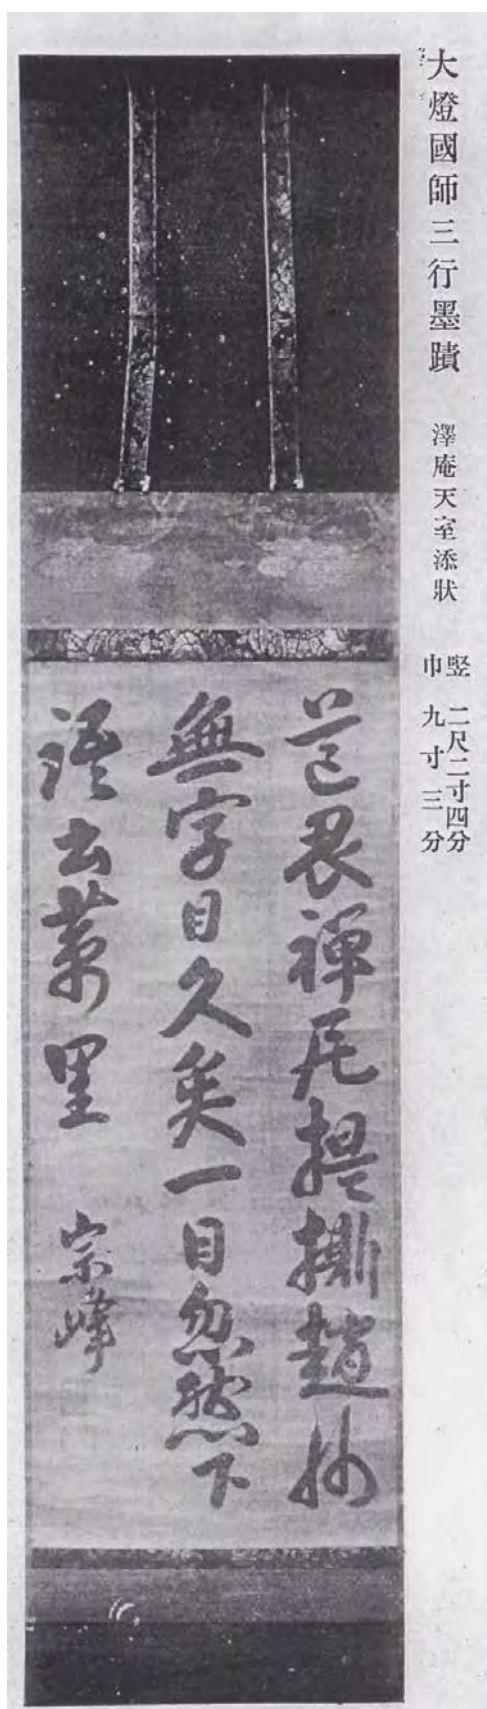 大燈國師三行墨蹟 澤庵天室添狀
竪 二尺二寸四分
巾 九寸三分
畏禅尼提撕趙州
無字日久矣一日忽然下
語云萬里 宗峰